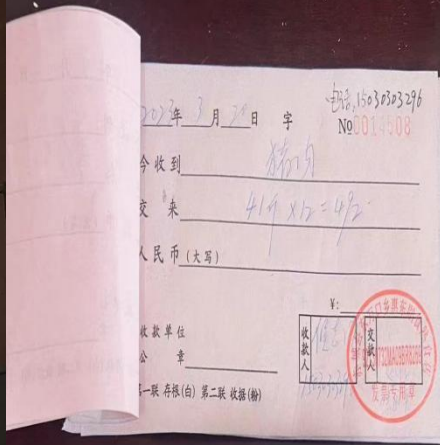 电话,15030303296
2023年3月20日 字
№0014608
今收到 猪肉
交来 41斤×12=492
人民币(大写)
¥:
收款单位
公 章
收款人
交款人
第一联 存根(白) 第二联 收据(粉)
发票专用章